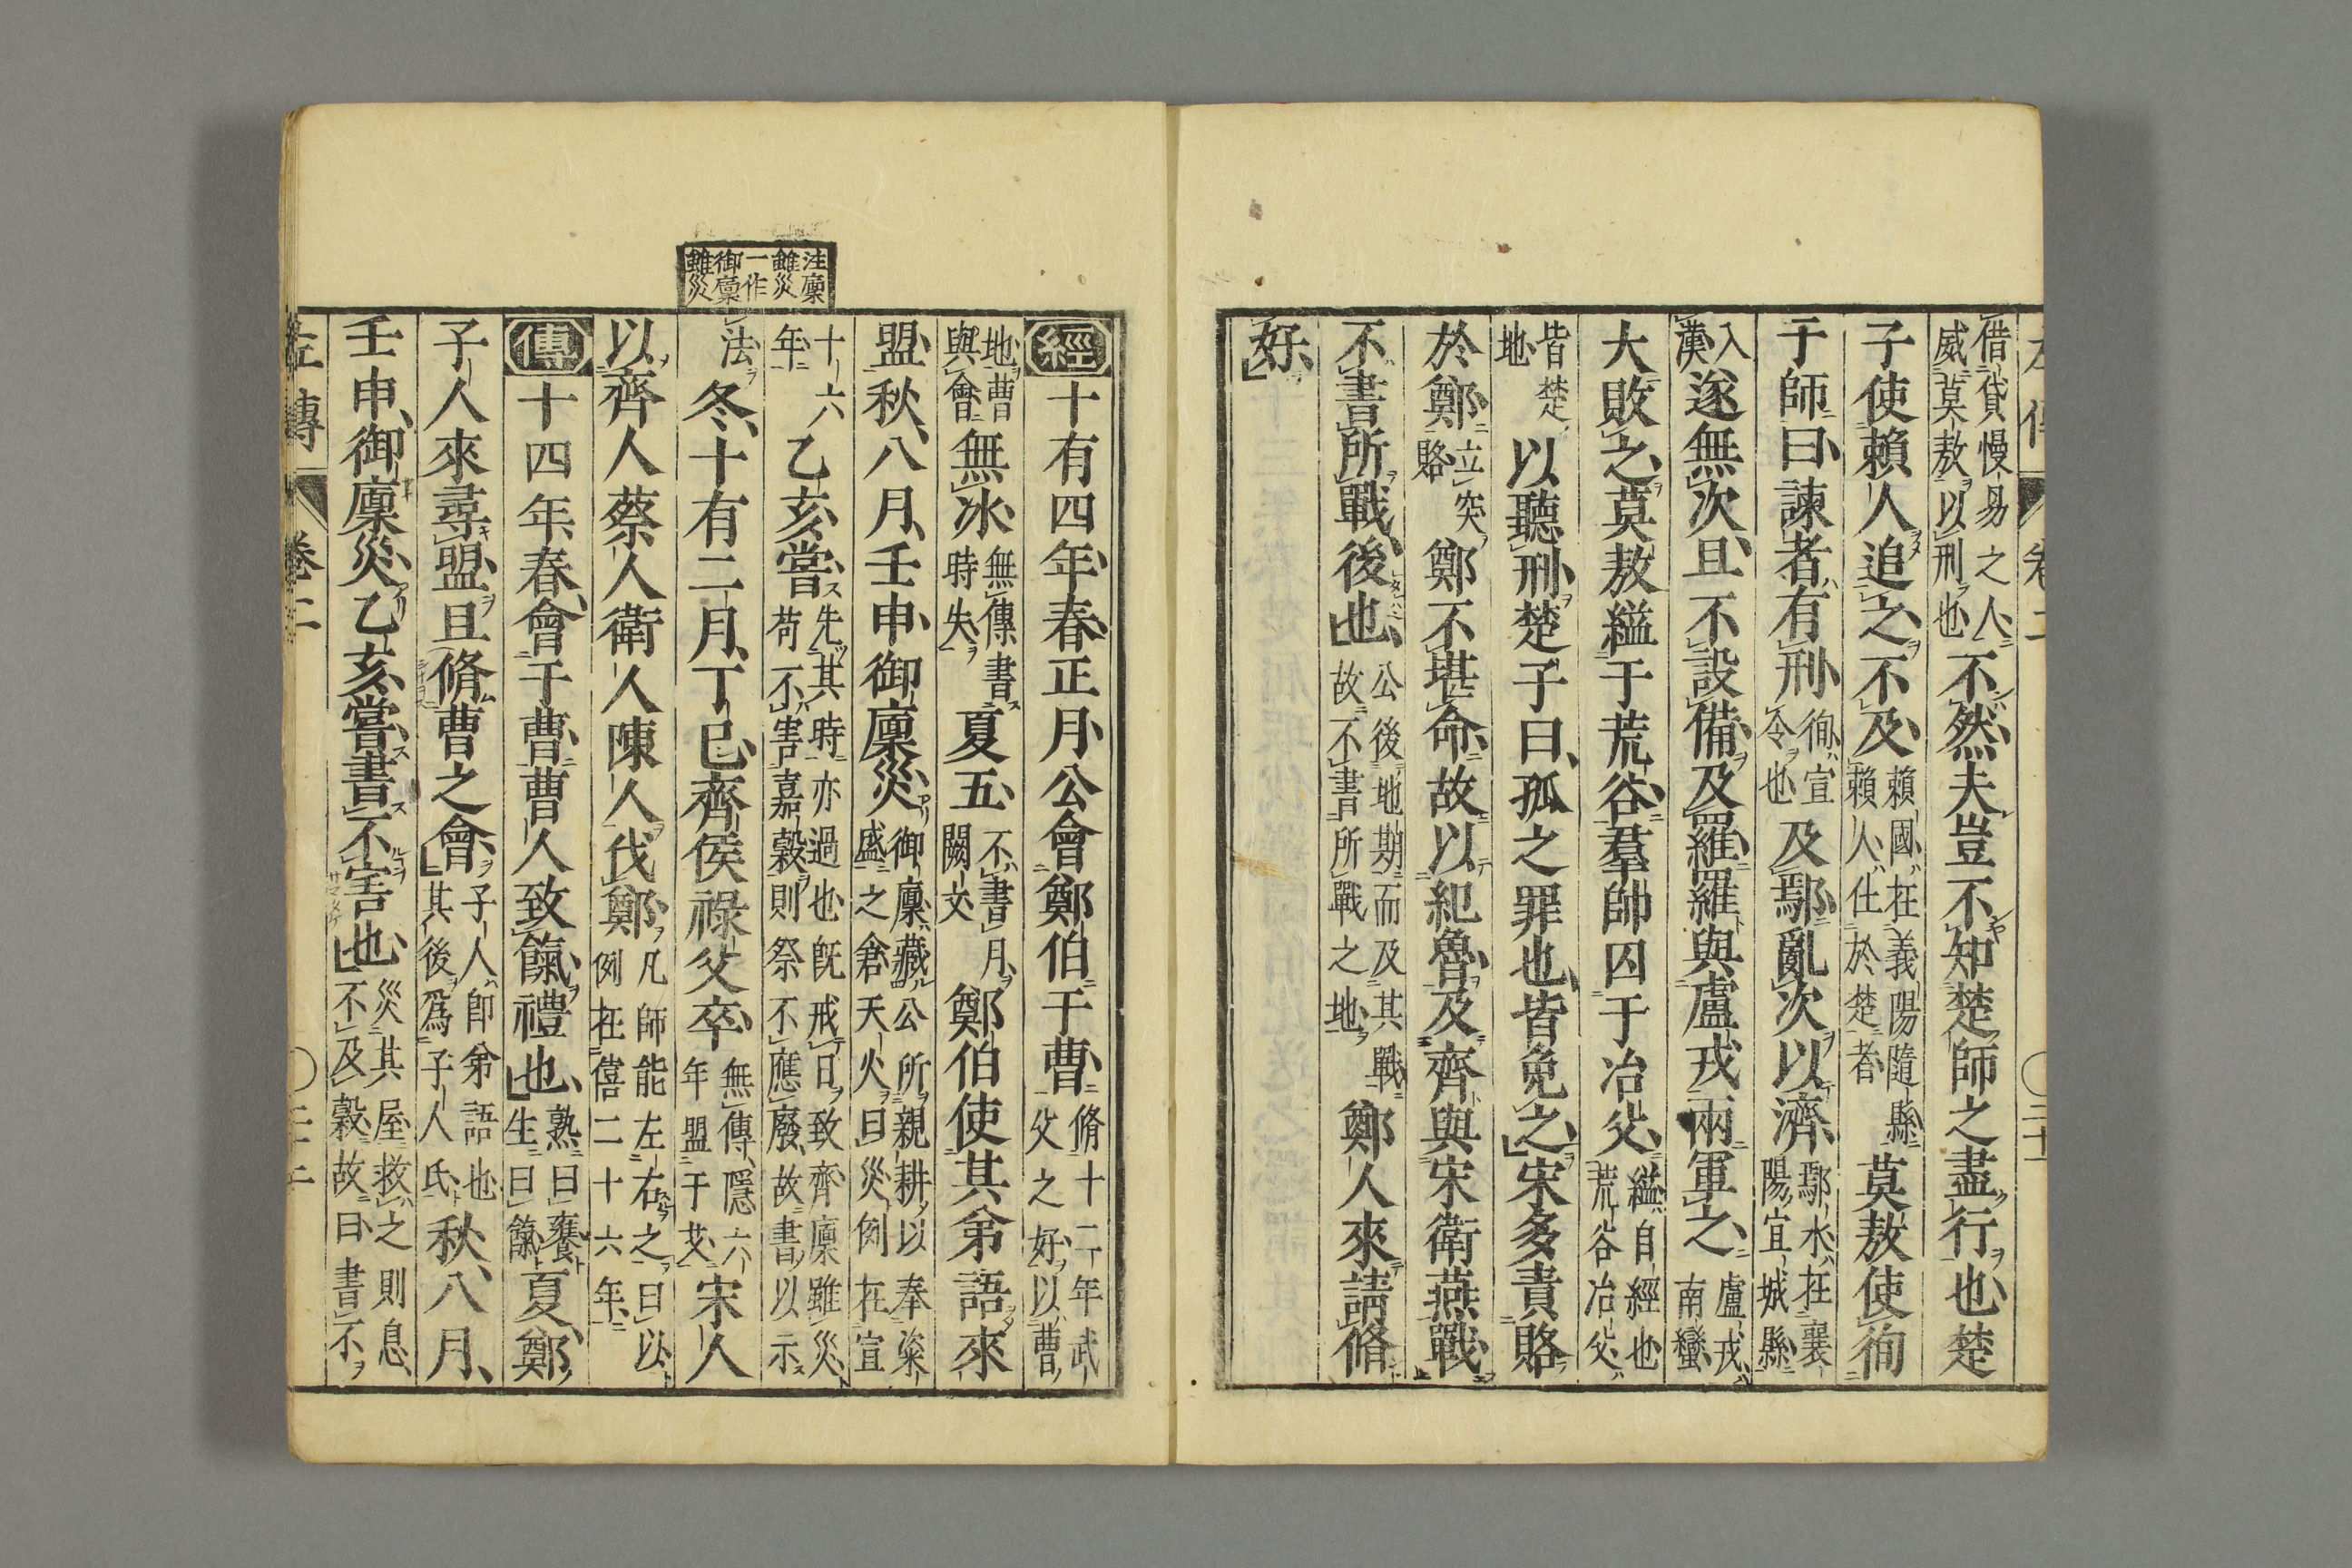 借貸慢易之人威莫敖以刑也不然夫豈不知楚師之盡行也楚
子使賴人追之不及賴國在義陽隨縣賴人仕於楚者莫敖使徇
于師曰諫者有刑徇宣令也及鄢亂次以濟鄢水在襄陽宜城縣
入漢遂無次且不設備及羅羅與盧戎兩軍之盧戎南蠻
大敗之莫敖縊于荒谷羣帥囚于冶父縊自經也荒谷冶父
皆楚地以聽刑楚子曰孤之罪也皆免之宋多責賂
於鄭立突賂鄭不堪命故以紀魯及齊與宋衛燕戰
不書所戰後也公後地期而及其戰故不書所戰之地鄭人來請脩
好
注廩雖災一作御廩雖災
經十有四年春正月公會鄭伯于曹脩十二年武父之好以曹
地曹與會無冰無傳書時失夏五不書月闕文鄭伯使其弟語來
盟秋八月壬申御廩災御廩藏公所親耕以奉粢盛之倉天火曰災例在宣
十六年乙亥嘗先其時亦過也既戒日致齊廩雖災苟不害嘉穀則祭不應廢故書以示
法冬十有二月丁巳齊侯祿父卒無傳隱六年盟于艾宋人
以齊人蔡人衛人陳人伐鄭凡師能左右之曰以例在僖二十六年
傳十四年春會于曹曹人致餼禮也熟曰饔生曰餼夏鄭
子人來尋盟且脩曹之會子人即弟語也其後爲子人氏秋八月
壬申御廩災乙亥嘗書不害也災其屋救之則息不及穀故曰書不
左傳 卷二